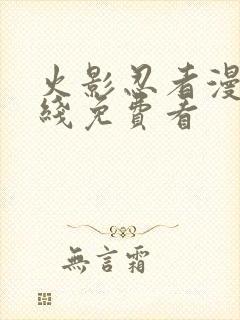 火影忍者漫
綫免費看
無言霜